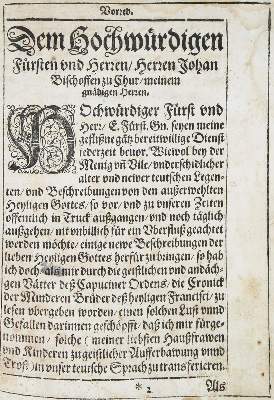 Vorred.
Dem Hochwürdigen
Fürsten vnd Herren/ Herren Johan
Bischoffen zu Chur/ meinem
gnädigen Herren.
HOchwürdiger Fürst vnd
Herr/ E. Fürst. Gn. seyen meine
geflißne gātz bereitwillige Dienst
jederzeit beuor. Wiewol bey der
Menig vñ Vile/ vnderschidlicher
alter vnd newer teutschen Legen-
ten/ vnd Beschreibungen von den außerwehlten
Heyligen Gottes/ so vor/ vnd zu vnseren Zeiten
offentlich in Truck außgangen/ vnd noch täglich
außgehen/ nit vnbillich für ein Vberfluß geachtet
werden möchte/ einige newe Beschreibungen der
lieben Heyligen Gottes herfür zubingen/ so hab
ich doch als mir durch die geistlichen vnd andäch-
gen Vätter deß Capuciner Ordens/ die Cronick
der Minderen Brüder deß heyligen Francisci/ zu
lesen vbergeben worden/ einen solchen Lust vnnd
Gefallen darinnen geschöpfft/ daß ich mir fürge-
nommen/ solche (meiner liebsten Haußfrawen
vnd Kinderen zu geistlicher Aufferbawung vnnd
Trost) in vnser teutsche Sprach zu transferieren.
* 2 Als